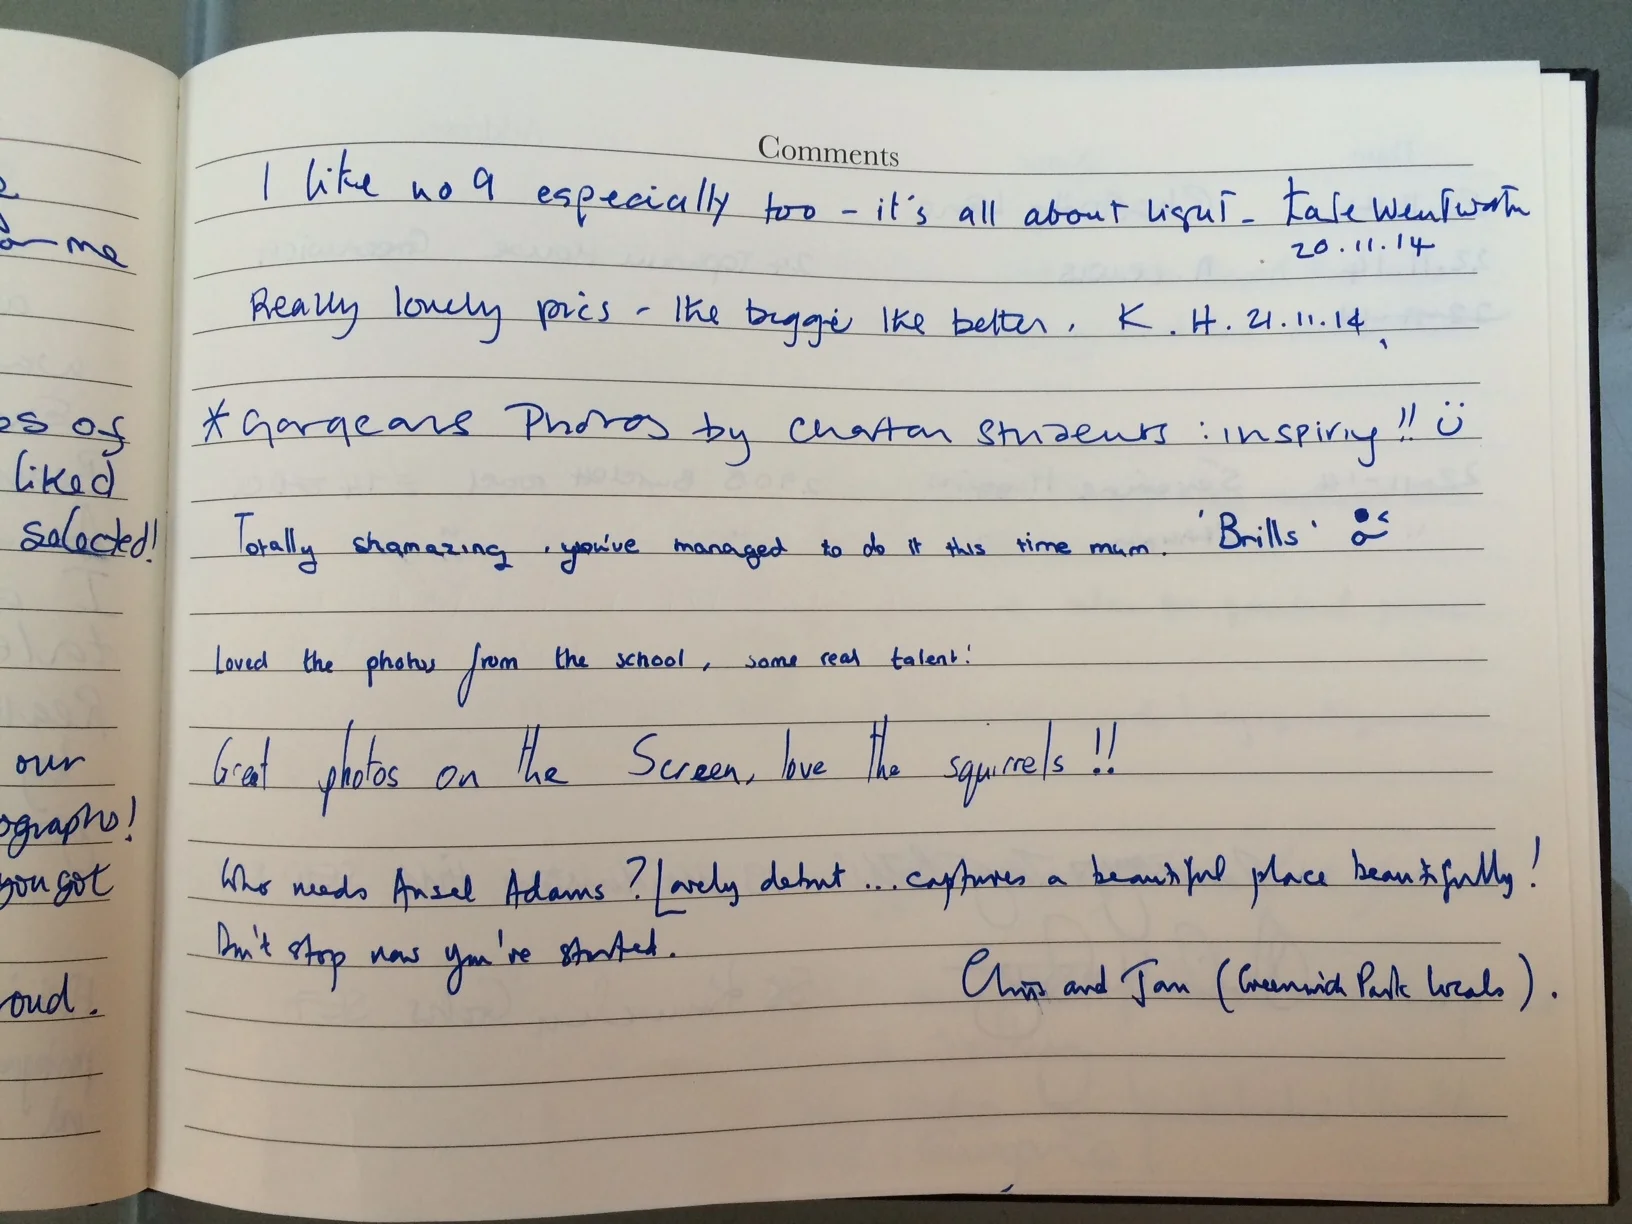 me
os of
liked
selected!
our
ographs!
you got
oud.
Comments
I like no 9 especially too - it's all about light - Kate Wentworth
20.11.14
Really lovely pics - the bigger the better. K.H. 21.11.14
*Gorgeous Photos by Charlton students : inspiring!! Ü
Totally shamazing, you've managed to do it this time mum. 'Brills'
Loved the photos from the school, some real talent!
Great photos on the Screen, love the squirrels!!
Who needs Ansel Adams? Lovely debut ... captures a beautiful place beautifully!
Don't stop now you're started.
Chris and Jan (Greenwich Park locals).